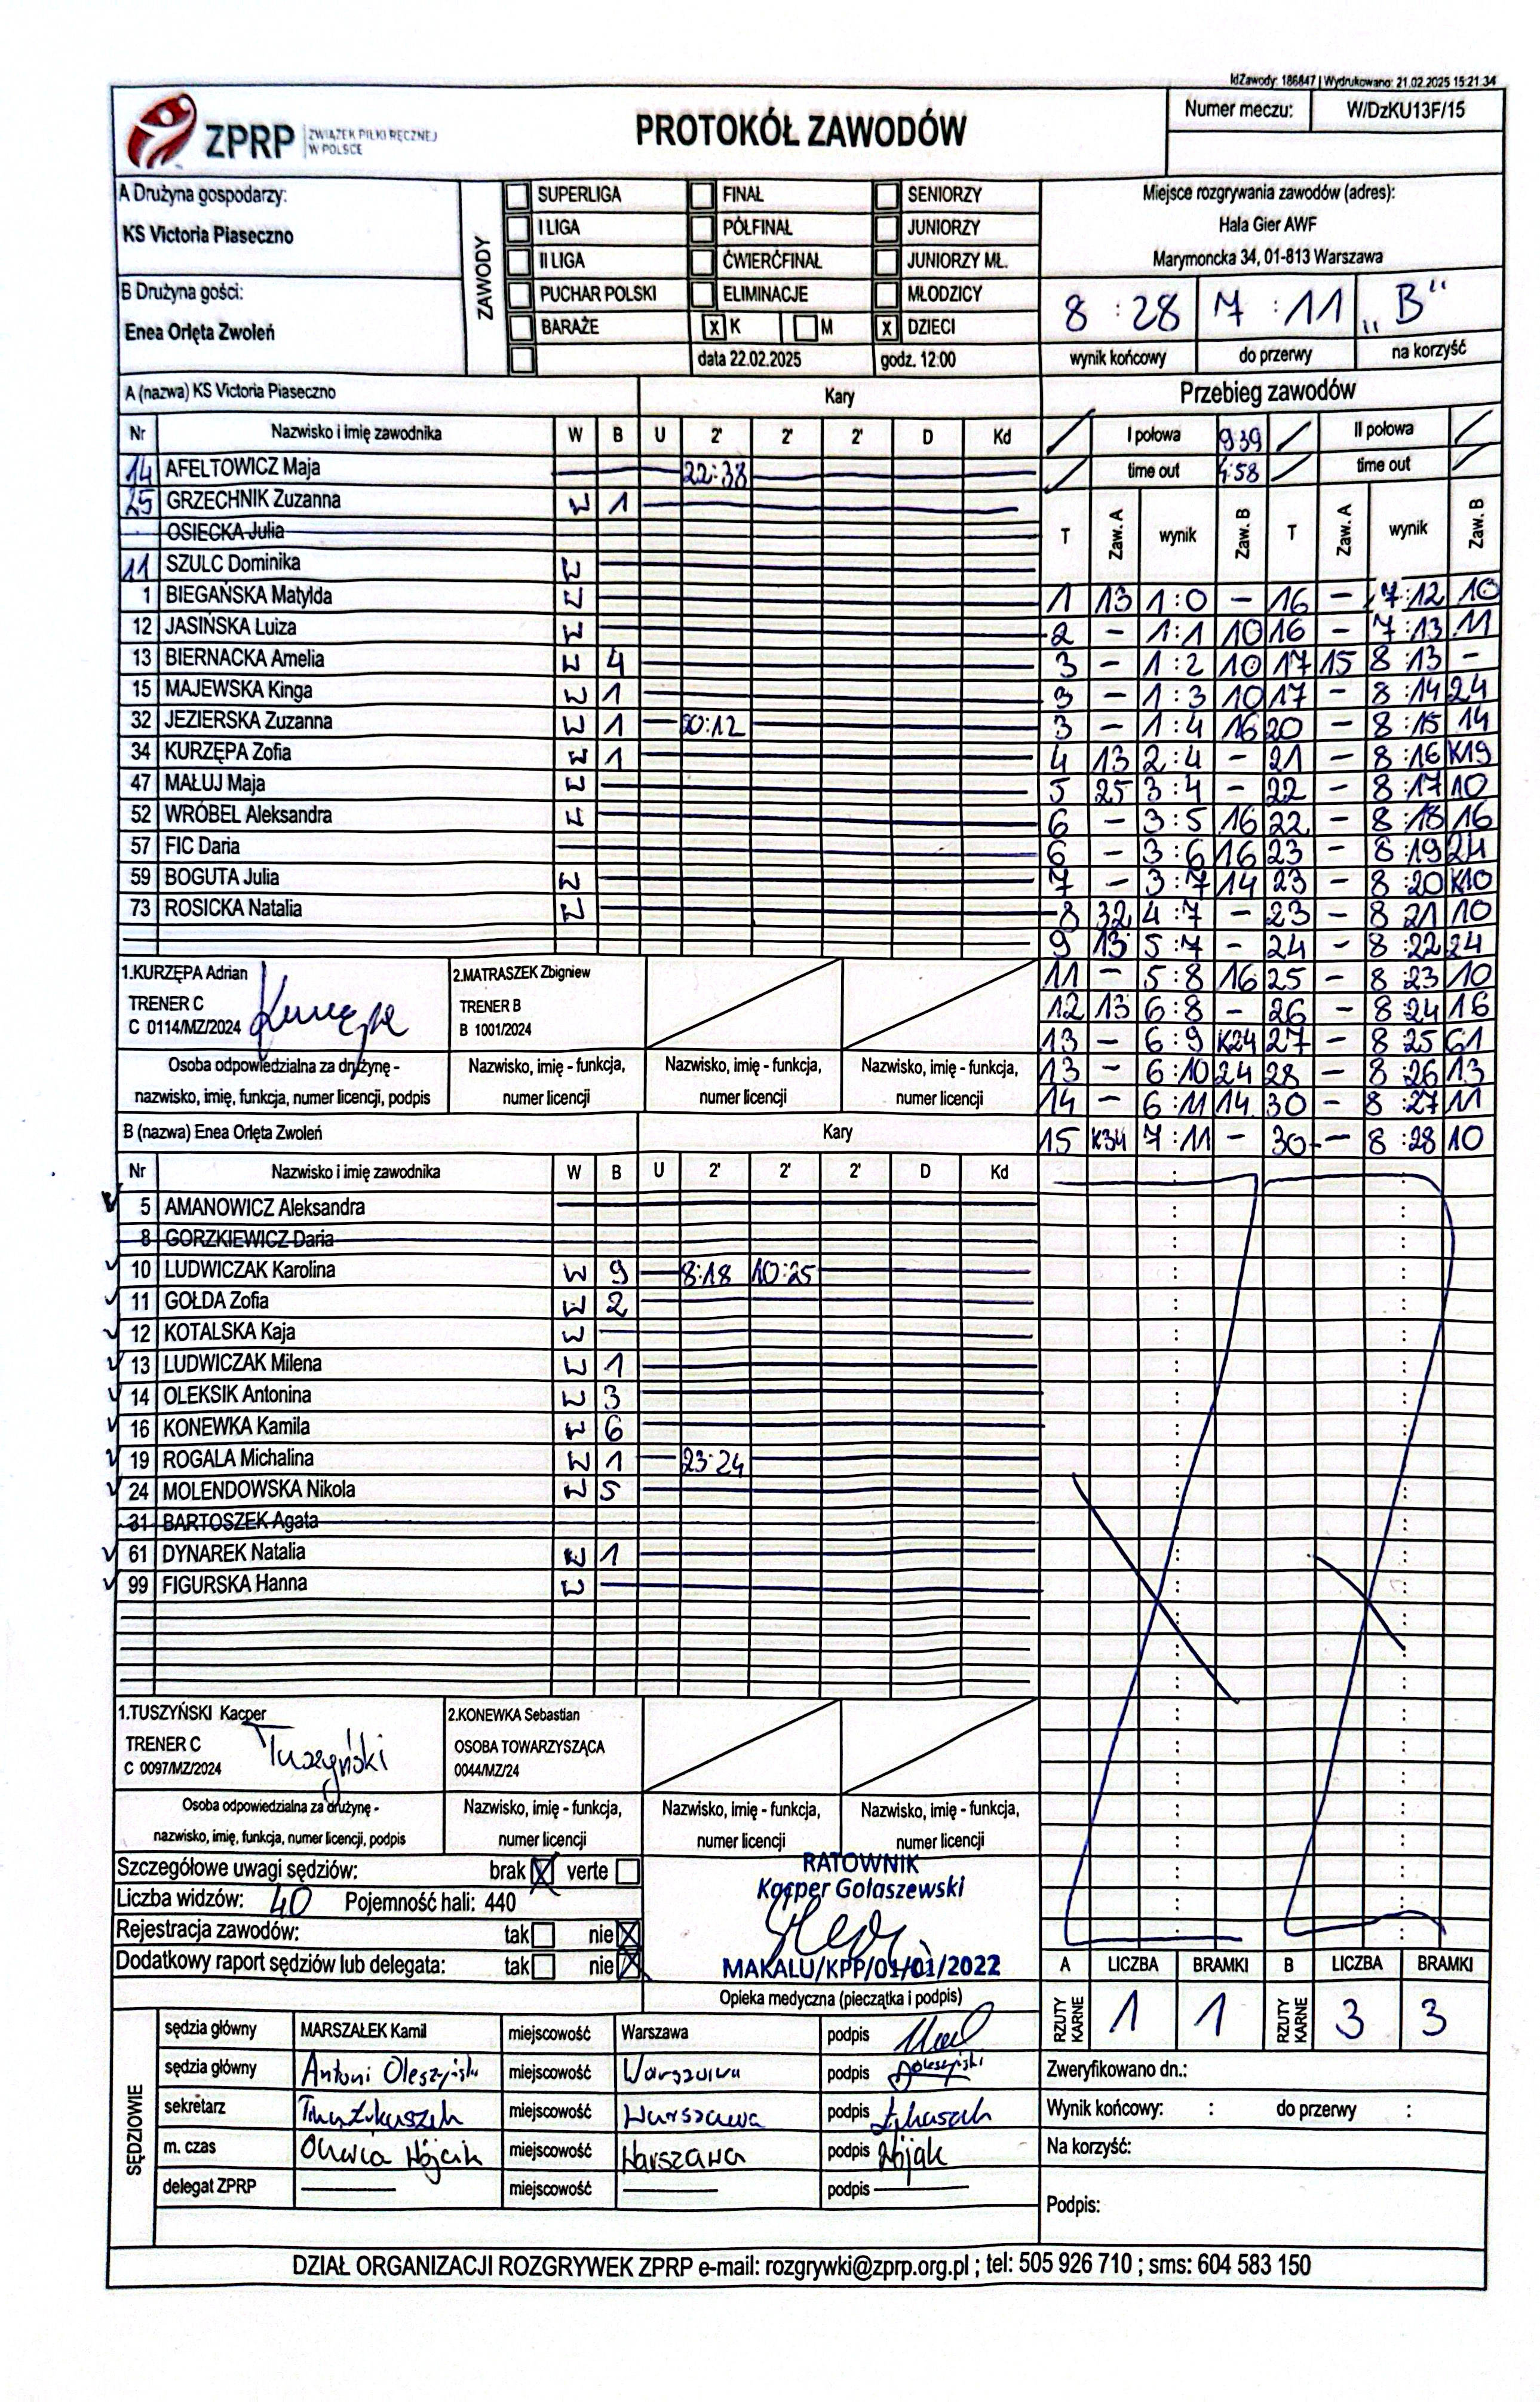 IdZawody: 186847 | Wydrukowano: 21.02.2025 15:21:34
ZPRP ZWIĄZEK PIŁKI RĘCZNEJ W POLSCE
PROTOKÓŁ ZAWODÓW
Numer meczu: W/DzKU13F/15
A Drużyna gospodarzy:
KS Victoria Piaseczno
B Drużyna gości:
Enea Orlęta Zwoleń
ZAWODY
SUPERLIGA FINAŁ SENIORZY
I LIGA PÓŁFINAŁ JUNIORZY
II LIGA ĆWIERĆFINAŁ JUNIORZY MŁ.
PUCHAR POLSKI ELIMINACJE MŁODZICY
BARAŻE X K M X DZIECI
data 22.02.2025 godz. 12:00
Miejsce rozgrywania zawodów (adres):
Hala Gier AWF
Marymoncka 34, 01-813 Warszawa
8 : 28 7 : 11 „B“
wynik końcowy do przerwy na korzyść
A (nazwa) KS Victoria Piaseczno Kary
Nr Nazwisko i imię zawodnika W B U 2' 2' 2' D Kd
14 AFELTOWICZ Maja 22:38
25 GRZECHNIK Zuzanna W 1
OSIECKA Julia
11 SZULC Dominika W
1 BIEGAŃSKA Matylda W
12 JASIŃSKA Luiza W
13 BIERNACKA Amelia W 4
15 MAJEWSKA Kinga W 1
32 JEZIERSKA Zuzanna W 1 20:12
34 KURZĘPA Zofia W 1
47 MAŁUJ Maja W
52 WRÓBEL Aleksandra W
57 FIC Daria
59 BOGUTA Julia W
73 ROSICKA Natalia W
1.KURZĘPA Adrian
TRENER C
C 0114/MZ/2024
Kurzępa
2.MATRASZEK Zbigniew
TRENER B
B 1001/2024
Osoba odpowiedzialna za drużynę -
nazwisko, imię, funkcja, numer licencji, podpis
Nazwisko, imię - funkcja,
numer licencji
Nazwisko, imię - funkcja,
numer licencji
Nazwisko, imię - funkcja,
numer licencji
B (nazwa) Enea Orlęta Zwoleń Kary
Nr Nazwisko i imię zawodnika W B U 2' 2' 2' D Kd
5 AMANOWICZ Aleksandra
8 GORZKIEWICZ Daria
10 LUDWICZAK Karolina W 9 8:18 10:25
11 GOŁDA Zofia W 2
12 KOTALSKA Kaja W
13 LUDWICZAK Milena W 1
14 OLEKSIK Antonina W 3
16 KONEWKA Kamila W 6
19 ROGALA Michalina W 1 23:24
24 MOLENDOWSKA Nikola W 5
31 BARTOSZEK Agata
61 DYNAREK Natalia W 1
99 FIGURSKA Hanna W
1.TUSZYŃSKI Kacper
TRENER C
C 0097/MZ/2024
Tuszyński
2.KONEWKA Sebastian
OSOBA TOWARZYSZĄCA
0044/MZ/24
Osoba odpowiedzialna za drużynę -
nazwisko, imię, funkcja, numer licencji, podpis
Nazwisko, imię - funkcja,
numer licencji
Nazwisko, imię - funkcja,
numer licencji
Nazwisko, imię - funkcja,
numer licencji
Przebieg zawodów
I połowa 9:39 II połowa
time out 4:58 time out
T Zaw. A wynik Zaw. B T Zaw. A wynik Zaw. B
1 13 1:0 – 16 – 7:12 10
2 – 1:1 10 16 – 7:13 11
3 – 1:2 10 17 15 8:13 –
3 – 1:3 10 17 – 8:14 24
3 – 1:4 16 20 – 8:15 14
4 13 2:4 – 21 – 8:16 K19
5 25 3:4 – 22 – 8:17 10
6 – 3:5 16 22 – 8:18 16
6 – 3:6 16 23 – 8:19 24
7 – 3:7 14 23 – 8:20 K10
8 32 4:7 – 23 – 8 21 10
9 13 5:7 – 24 – 8:22 24
11 – 5:8 16 25 – 8 23 10
12 13 6:8 – 26 – 8 24 16
13 – 6:9 K24 27 – 8 25 61
13 – 6:10 24 28 – 8:26 13
14 – 6:11 14 30 – 8:27 11
15 K34 7:11 – 30 – 8:28 10
Szczegółowe uwagi sędziów: brak X verte
Liczba widzów: 40 Pojemność hali: 440
Rejestracja zawodów: tak nie X
Dodatkowy raport sędziów lub delegata: tak nie X
RATOWNIK
Kacper Gołaszewski
MAKALU/KPP/01/01/2022
Opieka medyczna (pieczątka i podpis)
A LICZBA BRAMKI B LICZBA BRAMKI
RZUTY KARNE 1 1 RZUTY KARNE 3 3
SĘDZIOWIE
sędzia główny MARSZAŁEK Kamil miejscowość Warszawa podpis
sędzia główny Antoni Oleszyński miejscowość Warszawa podpis Oleszyński
sekretarz miejscowość Warszawa podpis
m. czas Oliwia Wójcik miejscowość Warszawa podpis
delegat ZPRP miejscowość podpis
Zweryfikowano dn.:
Wynik końcowy: : do przerwy :
Na korzyść:
Podpis:
DZIAŁ ORGANIZACJI ROZGRYWEK ZPRP e-mail: rozgrywki@zprp.org.pl ; tel: 505 926 710 ; sms: 604 583 150